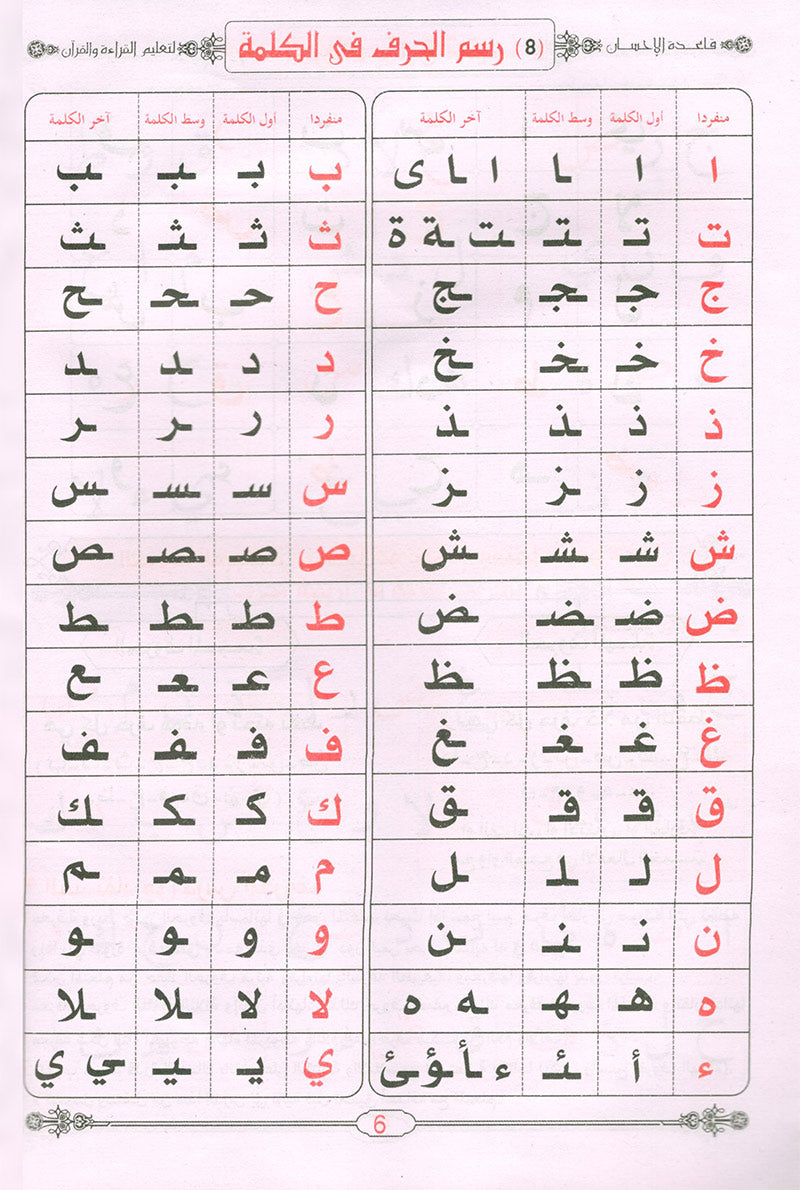 قاعدة الإحسان (8) رسم الحرف فى الكلمة لتعليم القراءة والقرآن
منفردا أول الكلمة وسط الكلمة آخر الكلمة منفردا أول الكلمة وسط الكلمة آخر الكلمة
ا ا ـا ا ـا ى ب بـ ـبـ ـب
ت تـ ـتـ ـت ـة ة ث ثـ ـثـ ـث
ج جـ ـجـ ـج ح حـ ـحـ ـح
خ خـ ـخـ ـخ د د ـد ـد
ذ ذ ـذ ـذ ر ر ـر ـر
ز ز ـز ـز س سـ ـسـ ـس
ش شـ ـشـ ـش ص صـ ـصـ ـص
ض ضـ ـضـ ـض ط طـ ـطـ ـط
ظ ظـ ـظـ ـظ ع عـ ـعـ ـع
غ غـ ـغـ ـغ ف فـ ـفـ ـف
ق قـ ـقـ ـق ك كـ ـكـ ـك
ل لـ ـلـ ـل م مـ ـمـ ـم
ن نـ ـنـ ـن و و ـو ـو
ه هـ ـهـ ـه ه لا لا ـلا ـلا
ء أ ـئـ ء ـأ ـؤ ـئ ي يـ ـيـ ـي ي
6